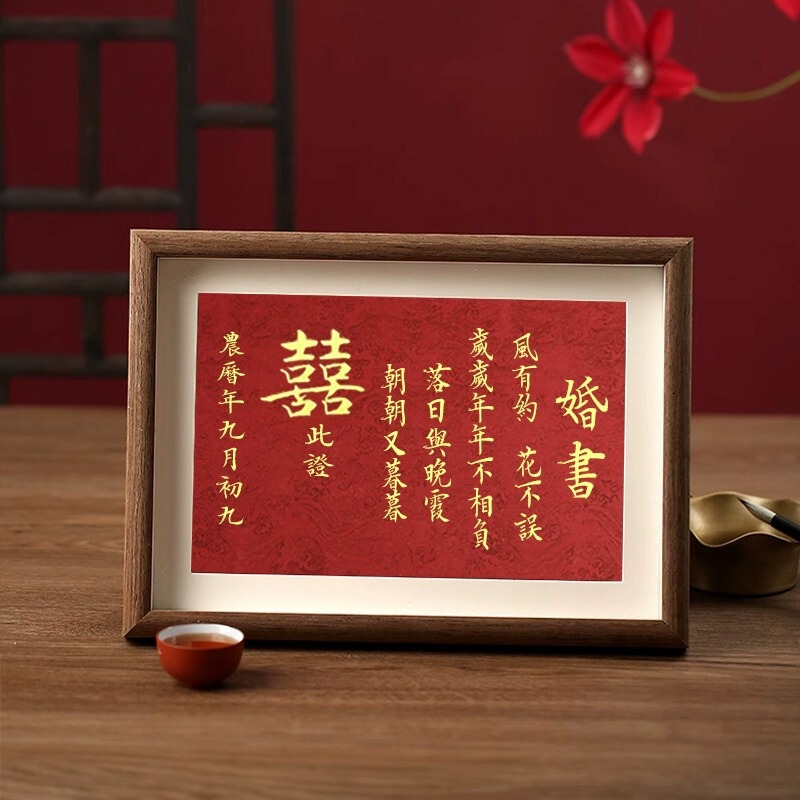 婚書
風有約 花不誤
歲歲年年不相負
落日與晚霞
朝朝又暮暮
囍
此證
農曆年九月初九